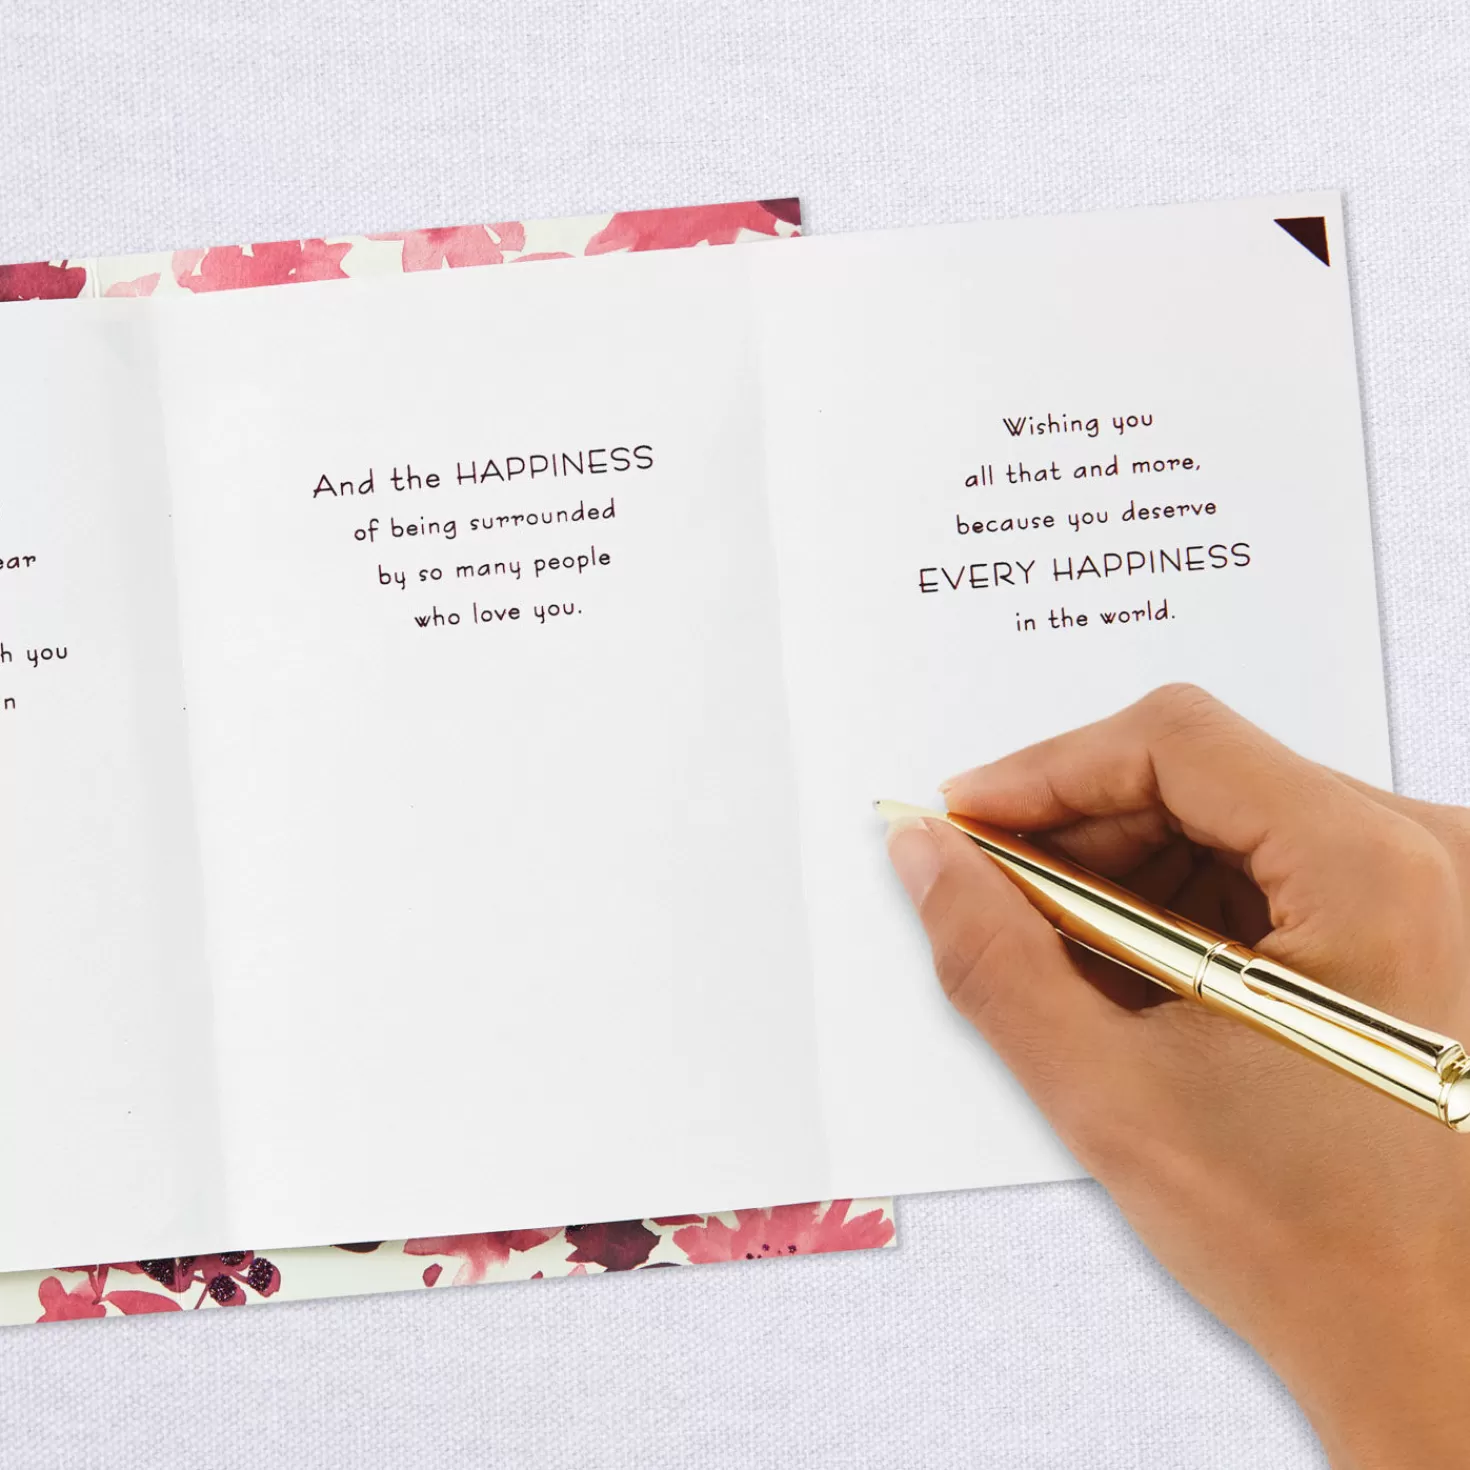 h you
n
And the HAPPINESS
of being surrounded
by so many people
who love you.
Wishing you
all that and more,
because you deserve
EVERY HAPPINESS
in the world.